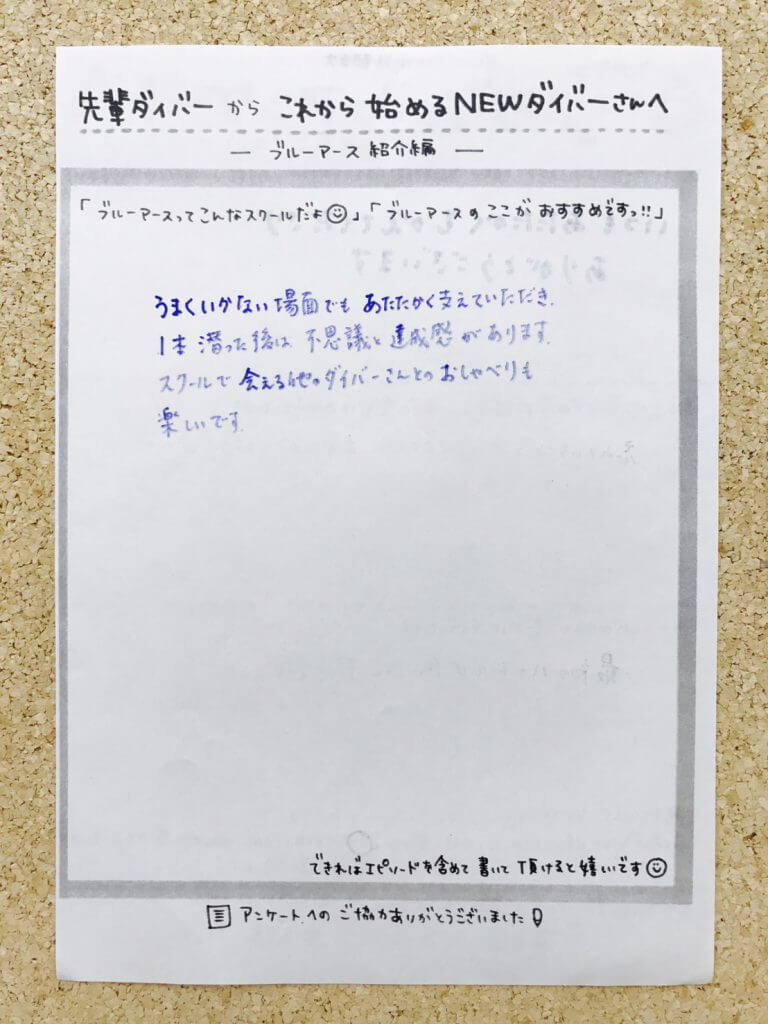 先輩ダイバーから これから始めるNEWダイバーさんへ
― ブルーアース紹介編 ―
「ブルーアースってこんなスクールだよ☺」「ブルーアースのここがおすすめですっ!!」
うまくいかない場面でも あたたかく支えていただき、
1本潜った後は 不思議と達成感があります。
スクールで会える他のダイバーさんとのおしゃべりも
楽しいです。
できればエピソードを含めて書いて頂けると嬉しいです☺
アンケートへのご協力ありがとうございました